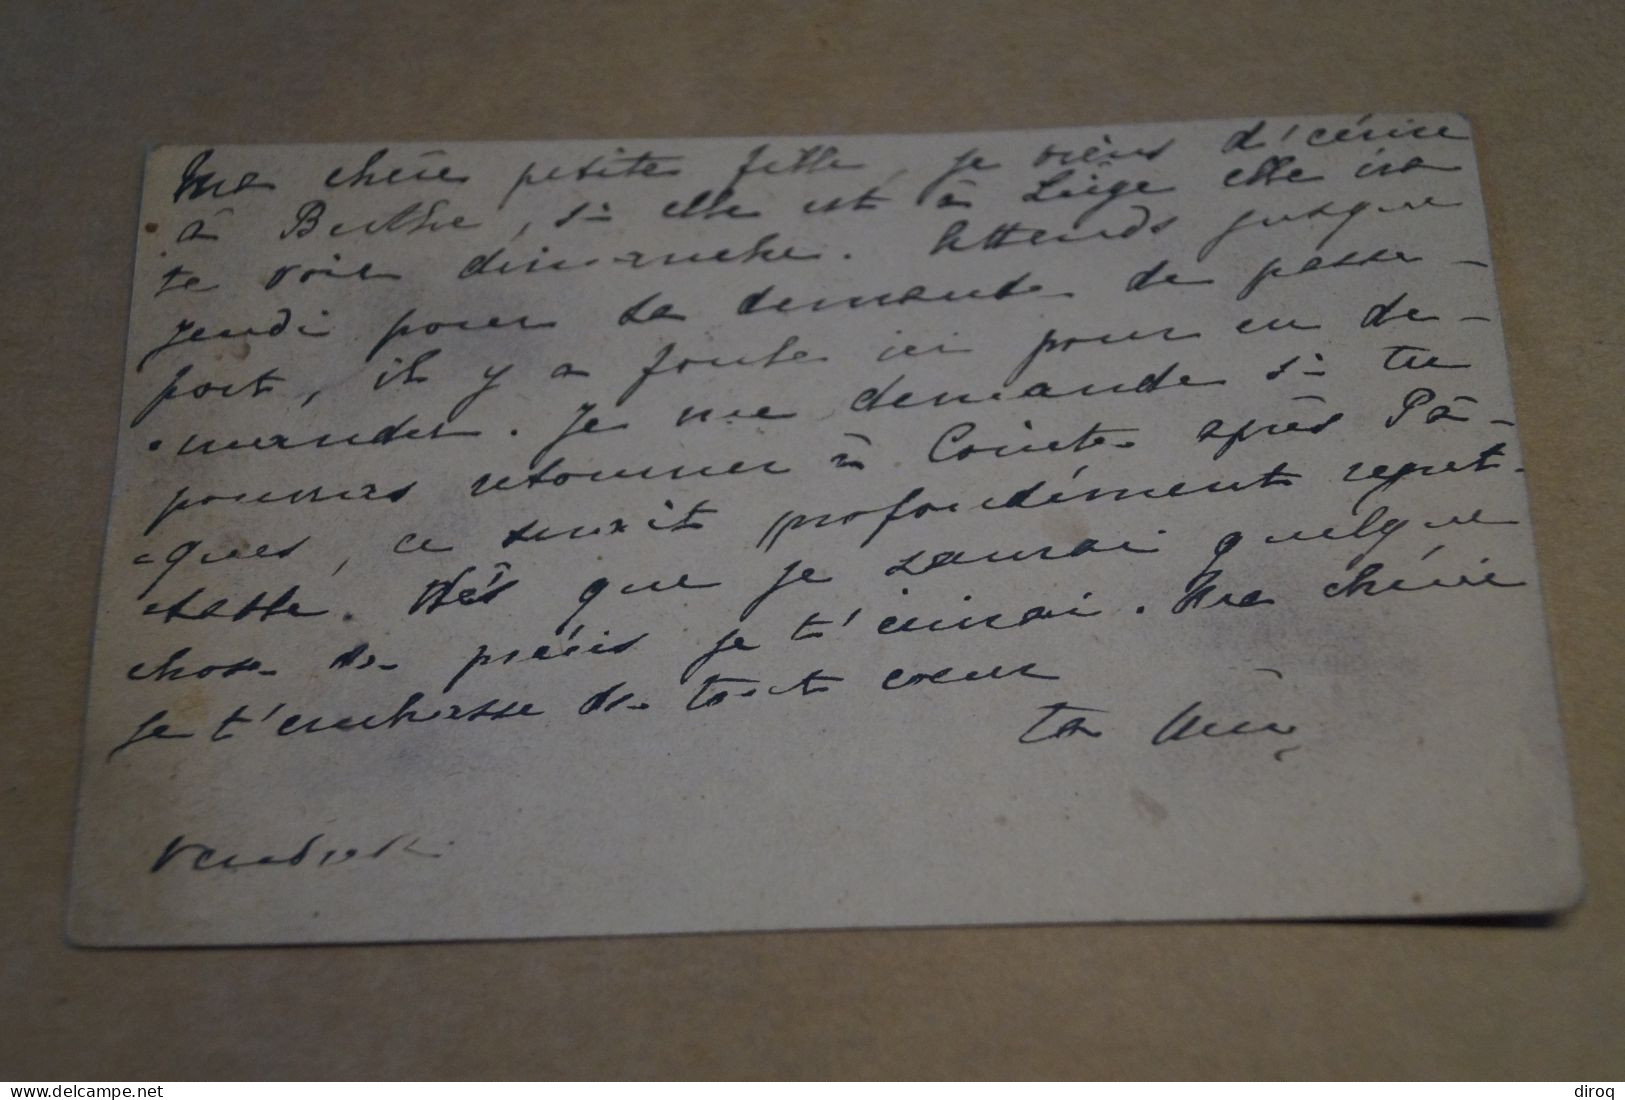 Ma chère petite fille, je viens d'écrire
à Berthe, si elle est à Liège elle ira
te voir dimanche. Attends jusque
jeudi pour ta demande de passe-
port, il y a foule ici pour en de-
mander. Je me demande si tu
pourras retourner à Cointe après Pâ-
ques, ce serait profondément regret-
table. Dès que je saurai quelque
chose de précis je t'écrirai. Ma chérie
je t'embrasse de tout cœur
ta
vendredi
www.delcampe.net
diroq